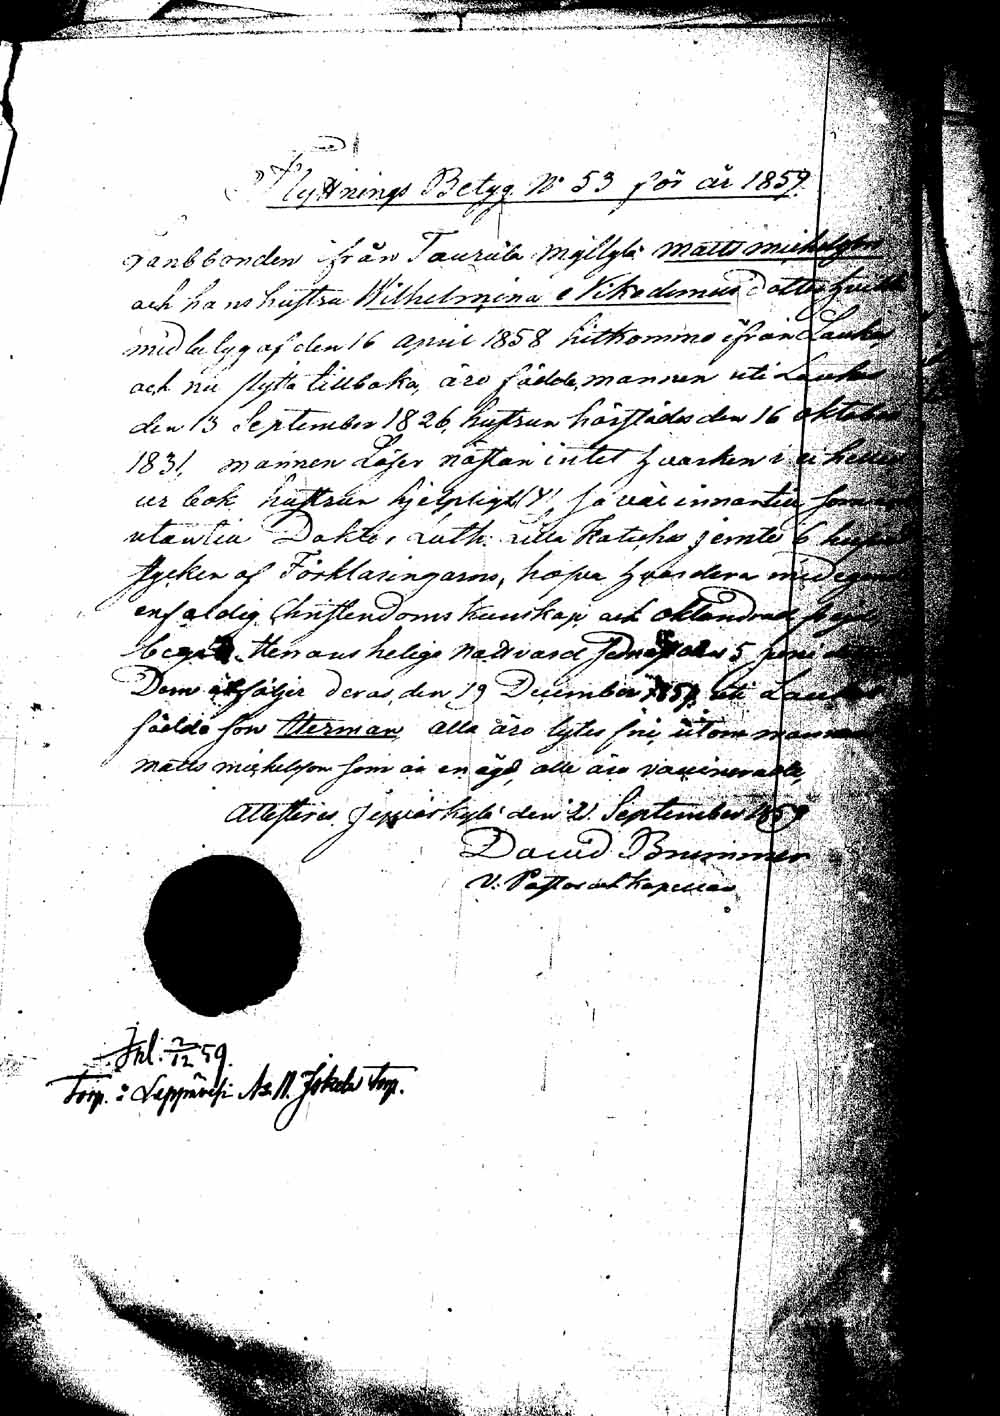 Flyttnings Betyg No 53 för år 1859.
ifrån Taurula Myllylä Matts Michelsson
och hans hustru Wilhelmina Nikodemus dotter
med betyg af den 16 April 1858 hitkomne ifrån Laukas
och nu flytta tillbaka, äro födde, mannen uti Laukas
den 13 September 1826, hustrun härstädes den 16 oktober
1831, mannen Läser nästan intet hvarken i
ur bok, hustrun hjelpligt så väl innantill som
utantill Luth: Lilla Kateches jemte 6
stycken af Förklaringarne, hafva hvardera
enfaldig Christendoms kunskap, och oklandrad
Herrans helige Nattvard 5
Dem åtföljer deras den 19 December uti Laukas
födde son Herman, alla äro lytes fri, utom mannen
Matts Michelsson som är enögd, alla äro vaccinerade,
Attesteras Jyväskylä den 21. September 1859
David Brummer
V. Pastor och Kapellan
Inl. 2/12 59.
Torp. i Leppävesi No 11. Jokela Torp.